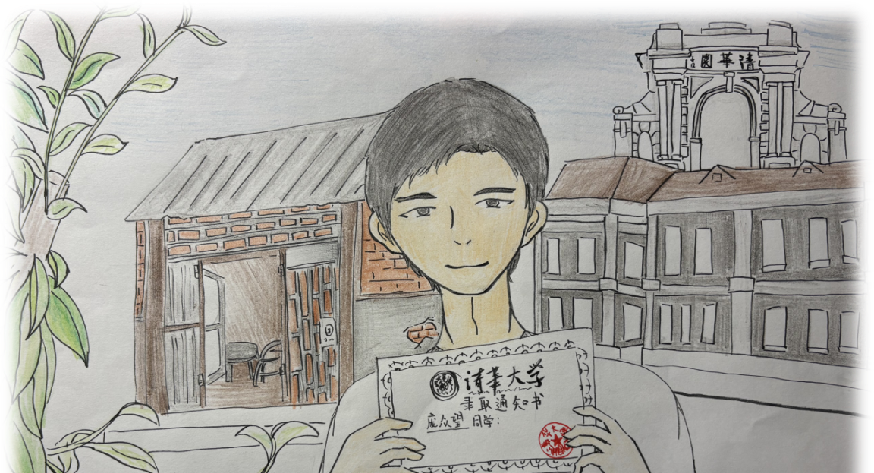 清華園
清華大学
录取通知书
庞众望 同学: